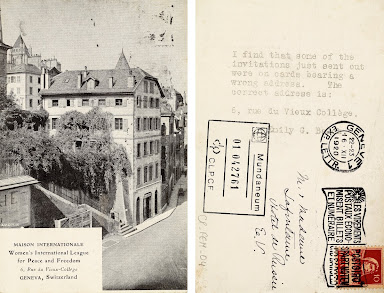 MAISON INTERNATIONALE
Women's International League
for Peace and Freedom
6, Rue du Vieux-Collège
GENEVA, Switzerland
I find that some of the
invitations just sent out
were on cards bearing a
wrong address. The
correct address is:
6, rue du Vieux Collège.
Emily C. B
GENÈVE
EXP. LETTR.
1926
Mundaneum
01042761
C/P CLPCF
Madame
Lafontaine
E.V.
LES VIREMENTS
POSTAUX ÉCONO-
MISENT BILLETS
ET NUMÉRAIRE